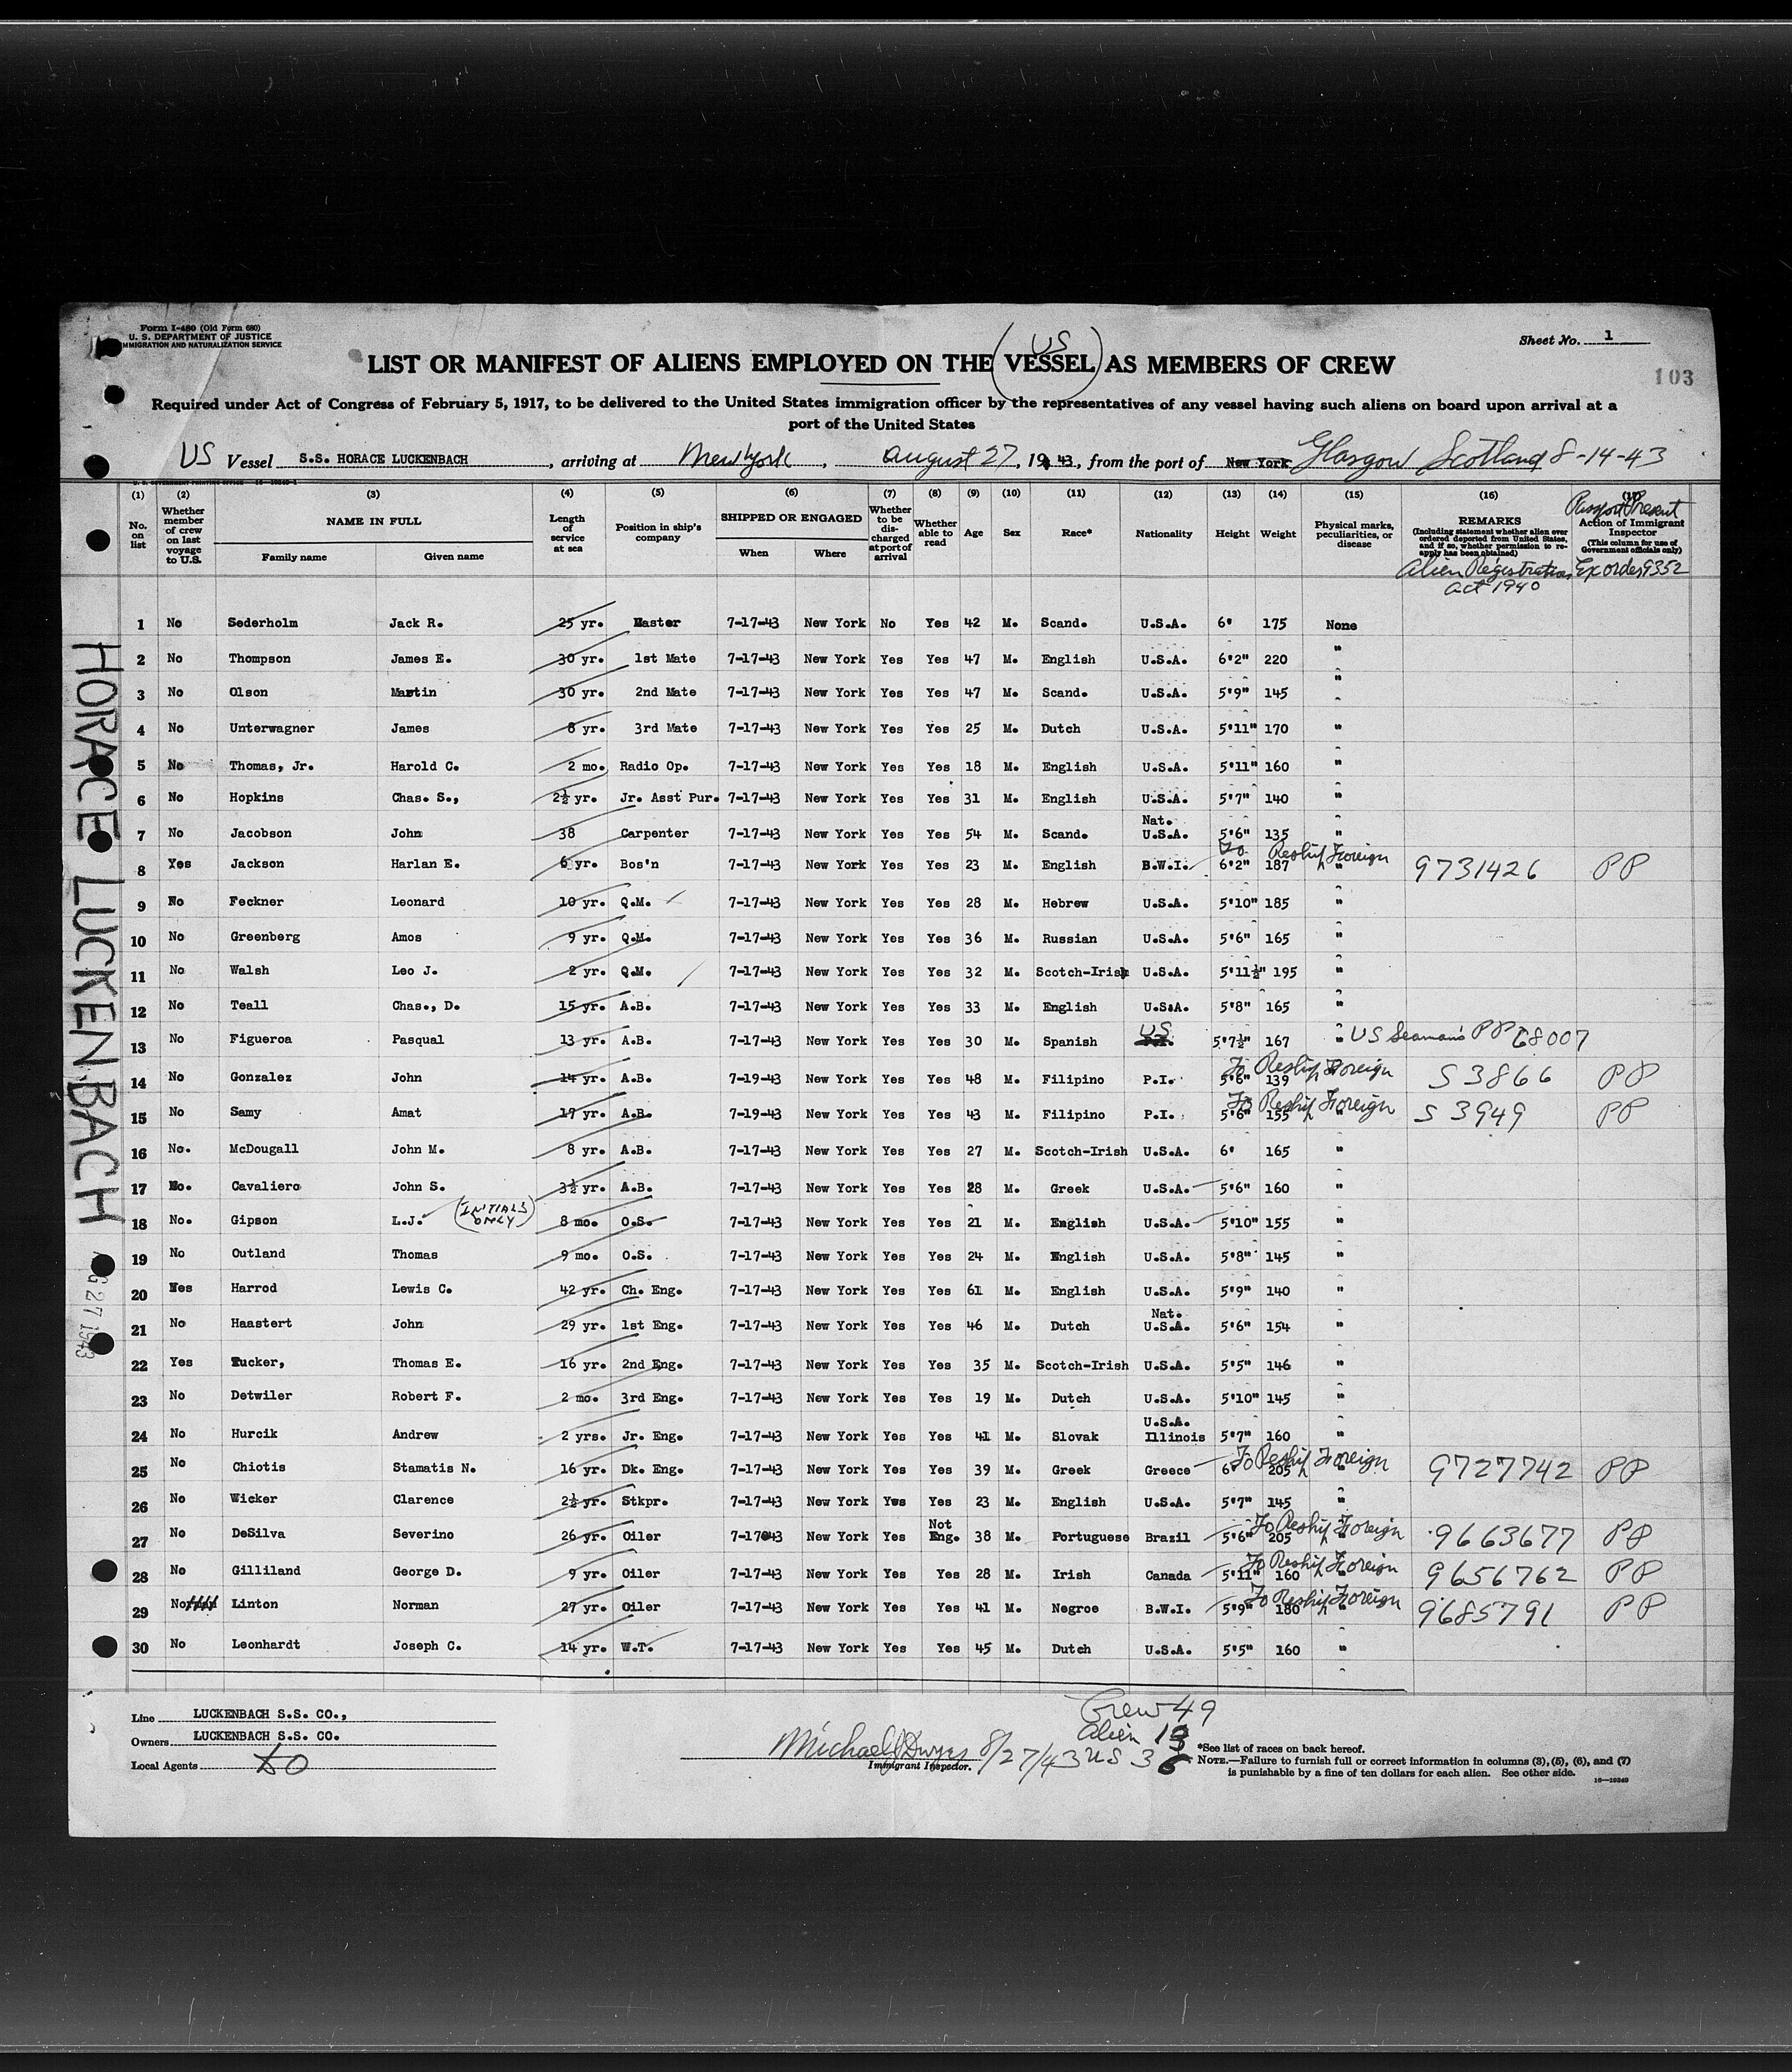 Form I-480 (Old Form 680)
U. S. DEPARTMENT OF JUSTICE
IMMIGRATION AND NATURALIZATION SERVICE
Sheet No. 1
103
US
LIST OR MANIFEST OF ALIENS EMPLOYED ON THE VESSEL AS MEMBERS OF CREW
Required under Act of Congress of February 5, 1917, to be delivered to the United States immigration officer by the representatives of any vessel having such aliens on board upon arrival at a
port of the United States
US Vessel S.S. HORACE LUCKENBACH, arriving at New York, August 27, 1943, from the port of New York Glasgow Scotland 8-14-43
(1) No. on list
(2) Whether member of crew on last voyage to U.S.
(3) NAME IN FULL Family name Given name
(4) Length of service at sea
(5) Position in ship's company
(6) SHIPPED OR ENGAGED When Where
(7) Whether to be discharged at port of arrival
(8) Whether able to read
(9) Age
(10) Sex
(11) Race*
(12) Nationality
(13) Height
(14) Weight
(15) Physical marks, peculiarities, or disease
(16) REMARKS (Including statement whether alien ever ordered deported from United States, and if so, whether permission to re-apply has been obtained)
Alien Registration Act 1940
(17) Passport Present Action of Immigrant Inspector (This column for use of Government officials only)
Ex order 9352
1 No Sederholm Jack R. 25 yr. Master 7-17-43 New York No Yes 42 M. Scand. U.S.A. 6' 175 None
2 No Thompson James E. 30 yr. 1st Mate 7-17-43 New York Yes Yes 47 M. English U.S.A. 6'2" 220 "
3 No Olson Martin 30 yr. 2nd Mate 7-17-43 New York Yes Yes 47 M. Scand. U.S.A. 5'9" 145 "
4 No Unterwagner James 8 yr. 3rd Mate 7-17-43 New York Yes Yes 25 M. Dutch U.S.A. 5'11" 170 "
5 No Thomas, Jr. Harold C. 2 mo. Radio Op. 7-17-43 New York Yes Yes 18 M. English U.S.A. 5'11" 160 "
6 No Hopkins Chas. S., 2½ yr. Jr. Asst Pur. 7-17-43 New York Yes Yes 31 M. English U.S.A. 5'7" 140 "
7 No Jacobson John 38 Carpenter 7-17-43 New York Yes Yes 54 M. Scand. Nat. U.S.A. 5'6" 135 "
8 Yes Jackson Harlan E. 6 yr. Bos'n 7-17-43 New York Yes Yes 23 M. English B.W.I. 6'2" 187 " To Reship Foreign 9731426 PP
9 No Feckner Leonard 10 yr. Q.M. 7-17-43 New York Yes Yes 28 M. Hebrew U.S.A. 5'10" 185 "
10 No Greenberg Amos 9 yr. Q.M. 7-17-43 New York Yes Yes 36 M. Russian U.S.A. 5'6" 165 "
11 No Walsh Leo J. 2 yr. Q.M. 7-17-43 New York Yes Yes 32 M. Scotch-Irish U.S.A. 5'11½" 195 "
12 No Teall Chas., D. 15 yr. A.B. 7-17-43 New York Yes Yes 33 M. English U.S.A. 5'8" 165 "
13 No Figueroa Pasqual 13 yr. A.B. 7-17-43 New York Yes Yes 30 M. Spanish US 5'7½" 167 " US Seaman's PP 68007
14 No Gonzalez John 14 yr. A.B. 7-19-43 New York Yes Yes 48 M. Filipino P.I. 5'6" 139 " To Reship Foreign S 3866 PP
15 No Samy Amat 17 yr. A.B. 7-19-43 New York Yes Yes 43 M. Filipino P.I. 5'6" 155 " To Reship Foreign S 3949 PP
16 No. McDougall John M. 8 yr. A.B. 7-17-43 New York Yes Yes 27 M. Scotch-Irish U.S.A. 6' 165 "
17 No. Cavaliero John S. 3½ yr. A.B. 7-17-43 New York Yes Yes 28 M. Greek U.S.A. 5'6" 160 "
18 No. Gipson L.J. (INITIALS ONLY) 8 mo. O.S. 7-17-43 New York Yes Yes 21 M. English U.S.A. 5'10" 155 "
19 No Outland Thomas 9 mo. O.S. 7-17-43 New York Yes Yes 24 M. English U.S.A. 5'8" 145 "
20 Yes Harrod Lewis C. 42 yr. Ch. Eng. 7-17-43 New York Yes Yes 61 M. English U.S.A. 5'9" 140 "
21 No Haastert John 29 yr. 1st Eng. 7-17-43 New York Yes Yes 46 M. Dutch Nat. U.S.A. 5'6" 154 "
22 Yes Tucker, Thomas E. 16 yr. 2nd Eng. 7-17-43 New York Yes Yes 35 M. Scotch-Irish U.S.A. 5'5" 146 "
23 No Detwiler Robert F. 2 mo. 3rd Eng. 7-17-43 New York Yes Yes 19 M. Dutch U.S.A. 5'10" 145 "
24 No Hurcik Andrew 2 yrs. Jr. Eng. 7-17-43 New York Yes Yes 41 M. Slovak U.S.A. Illinois 5'7" 160 "
25 No Chiotis Stamatis N. 16 yr. Dk. Eng. 7-17-43 New York Yes Yes 39 M. Greek Greece 6' 205 " To Reship Foreign 9727742 PP
26 No Wicker Clarence 2½ yr. Stkpr. 7-17-43 New York Yws Yes 23 M. English U.S.A. 5'7" 145 "
27 No DeSilva Severino 26 yr. Oiler 7-17-43 New York Yes Not Eng. 38 M. Portuguese Brazil 5'6" 205 " To Reship Foreign 9663677 PP
28 No Gilliland George D. 9 yr. Oiler 7-17-43 New York Yes Yes 28 M. Irish Canada 5'11" 160 " To Reship Foreign 9656762 PP
29 No Linton Norman 27 yr. Oiler 7-17-43 New York Yes Yes 41 M. Negroe B.W.I. 5'9" 180 " To Reship Foreign 9685791 PP
30 No Leonhardt Joseph C. 14 yr. W.T. 7-17-43 New York Yes Yes 45 M. Dutch U.S.A. 5'5" 160 "
HORACE LUCKENBACH
G 27 1943
Line LUCKENBACH S.S. CO.,
Owners LUCKENBACH S.S. CO.
Local Agents do
Michael J Dwyer 8/27/43
Immigrant Inspector.
Crew 49
Alien 13
US 36
*See list of races on back hereof.
NOTE.—Failure to furnish full or correct information in columns (3), (5), (6), and (7)
is punishable by a fine of ten dollars for each alien. See other side.
16—19349